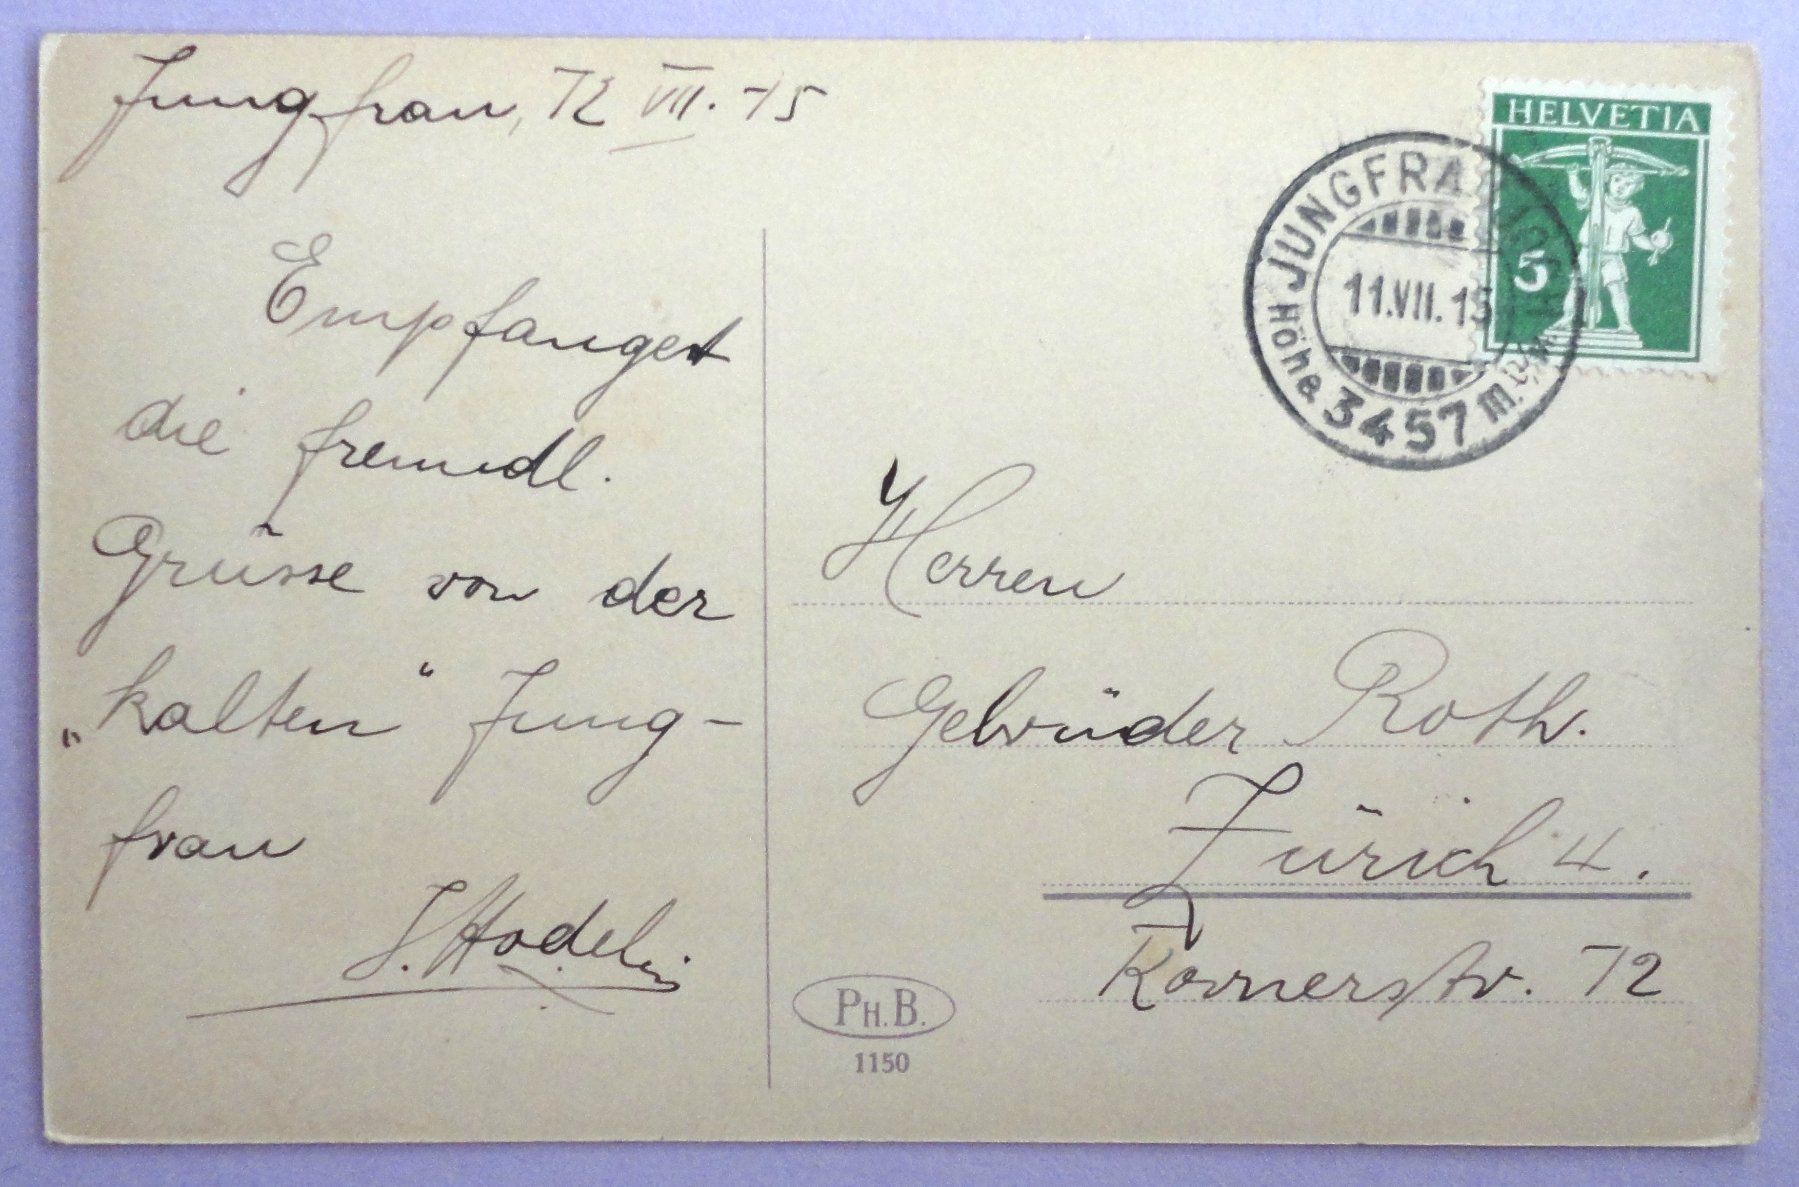 Jungfrau, 12 VII. 15
Empfanget
die freundl.
Grüsse von der
„kalten“ Jung-
frau
J. Hodel
HELVETIA
5
JUNGFRAUJOCH
11.VII.15
Höhe 3457 m.ü.M.
Herren
Gebrüder Roth.
Zürich 4.
Kornerstr. 12
PH.B.
1150